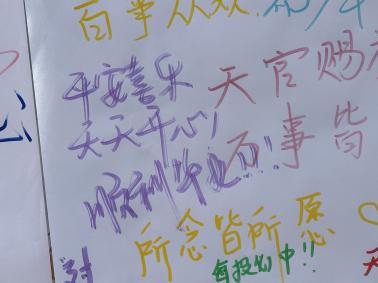 百事从欢
平安喜乐
天天开心!
顺利毕业!!!
天官赐
百事皆
所念皆所愿
每投必中!!
对
天